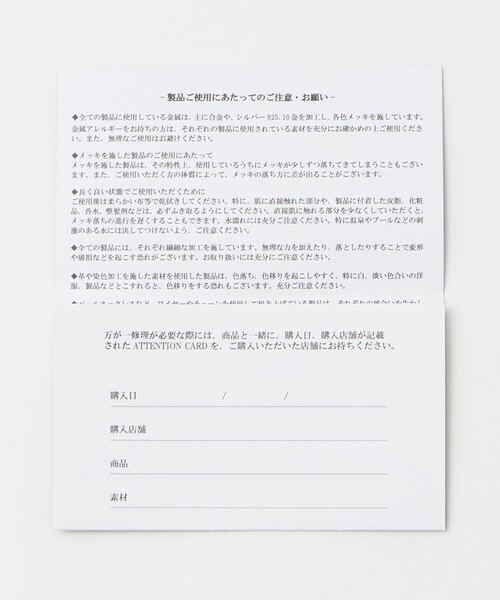 -製品ご使用にあたってのご注意・お願い-
◆全ての製品に使用している金属は、主に合金や、シルバー925.10金を加工し、各色メッキを施しています。
金属アレルギーをお持ちの方は、それぞれの製品に使用されている素材を充分にお確かめの上ご使用くださ
い。また、無理なご使用はお避けください。
◆メッキを施した製品のご使用にあたって
メッキを施した製品は、その特性上、使用しているうちにメッキが少しずつ落ちてきてしまうこともござい
ます。また、ご使用いただく方の体質によって、メッキの落ち方に差が出ることがございます。
◆長く良い状態でご使用いただくために
ご使用後は柔らかい布等で乾拭きしてください。特に、肌に直接触れた部分や、製品に付着した皮脂、化粧
品、香水、整髪剤などは、必ずふき取るようにしてください。直接肌に触れる部分を少なくしていただくと、
メッキ落ちの進行を遅くすることもできます。水濡れには充分ご注意ください。特に温泉やプールなどの刺
激のある水には決してつけないよう、ご注意ください。
◆全ての製品には、それぞれ繊細な加工を施しています。無理な力を加えたり、落としたりすることで変形
や破損などを起こす恐れがございます。お取り扱いには充分にご注意ください。
◆革や染色加工を施した素材を使用した製品は、色落ち、色移りを起こしやすく、特に白、淡い色合いの洋
服、製品などとこすれると、色移りをする恐れもございます。充分ご注意ください。
万が一修理が必要な際には、商品と一緒に、購入日、購入店舗が記載
された ATTENTION CARD を、ご購入いただいた店舗にお持ちください。
購入日 / /
購入店舗
商品
素材